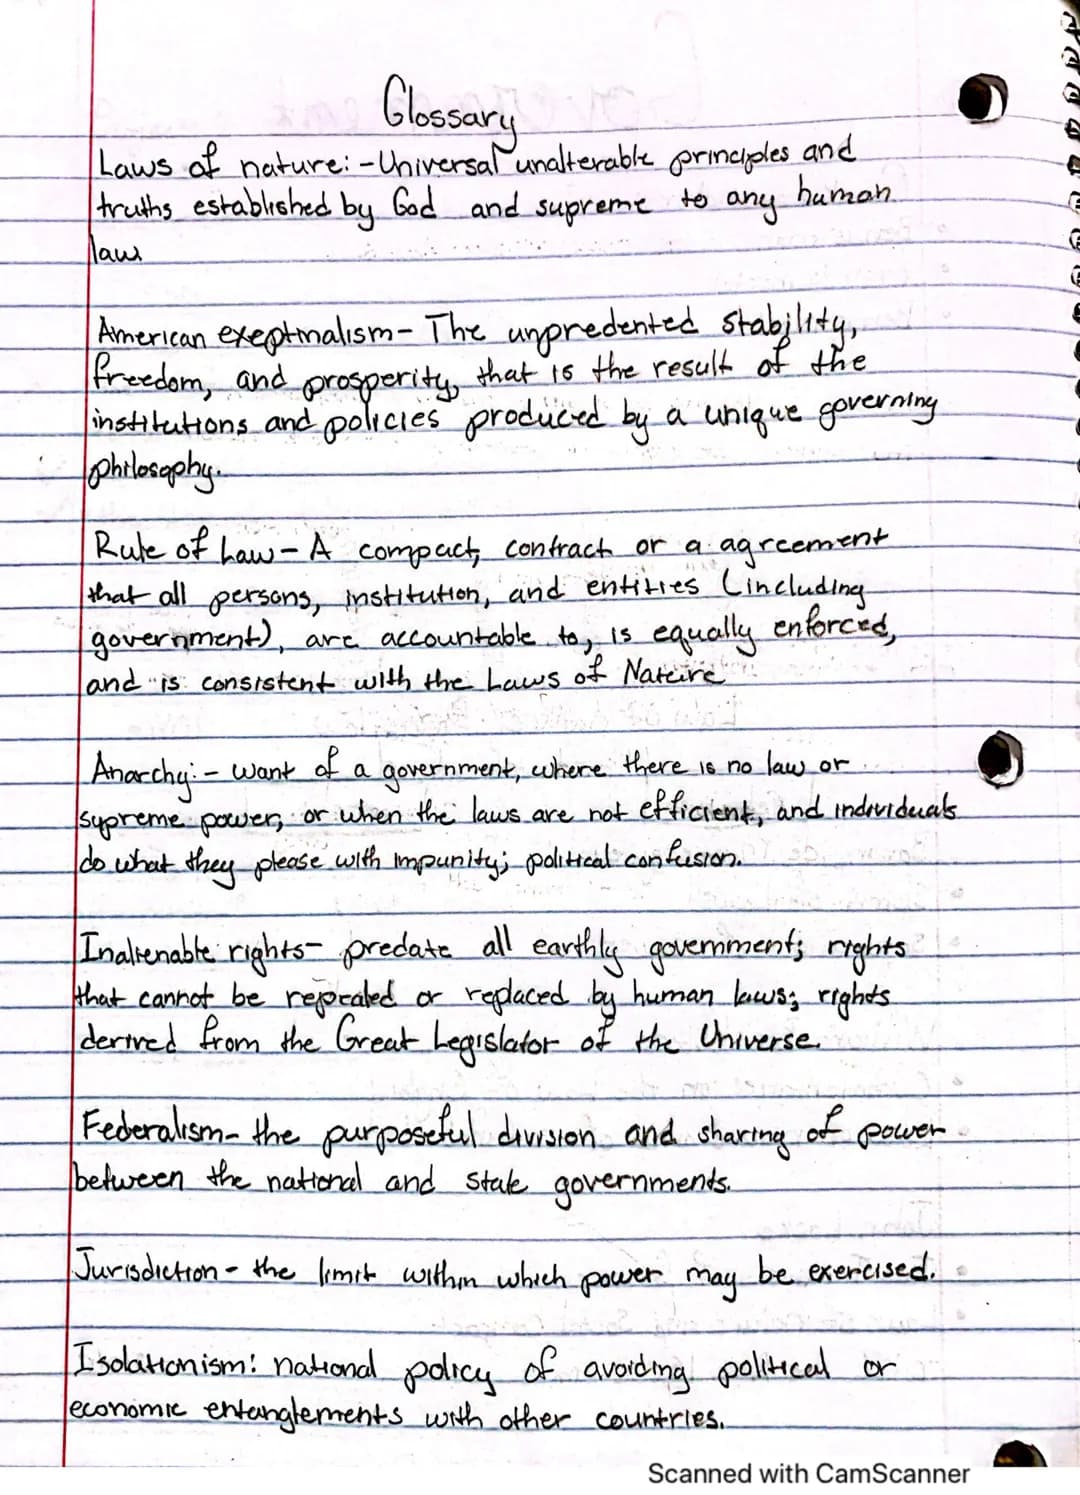 Glossary
Laws of nature:-Universal unalterable principles and
truths established by God and supreme to any human
law
American exeptinalism- The unpredented stability,
freedom, and prosperity, that is the result of the
institutions and policies produced by a unique governing
philosophy.
Rule of Law- A compact, contract or a agreement
that all persons, institution, and entities (including
government), are accountable to, is equally enforced,
and is consistent with the Laws of Nature
Anarchy:- want of a government, where there is no law or
supreme power, or when the laws are not efficient, and individuals
do what they please with impunity; political confusion.
Inalienable rights- predate all earthly government; rights
that cannot be repealed or replaced by human laws; rights
derived from the Great Legislator of the Universe.
Federalism- the purposeful division and sharing of power
between the national and state governments.
Jurisdiction- the limit within which power may be exercised.
Isolationism: national policy of avoiding political or
economic entanglements with other countries.
Scanned with CamScanner